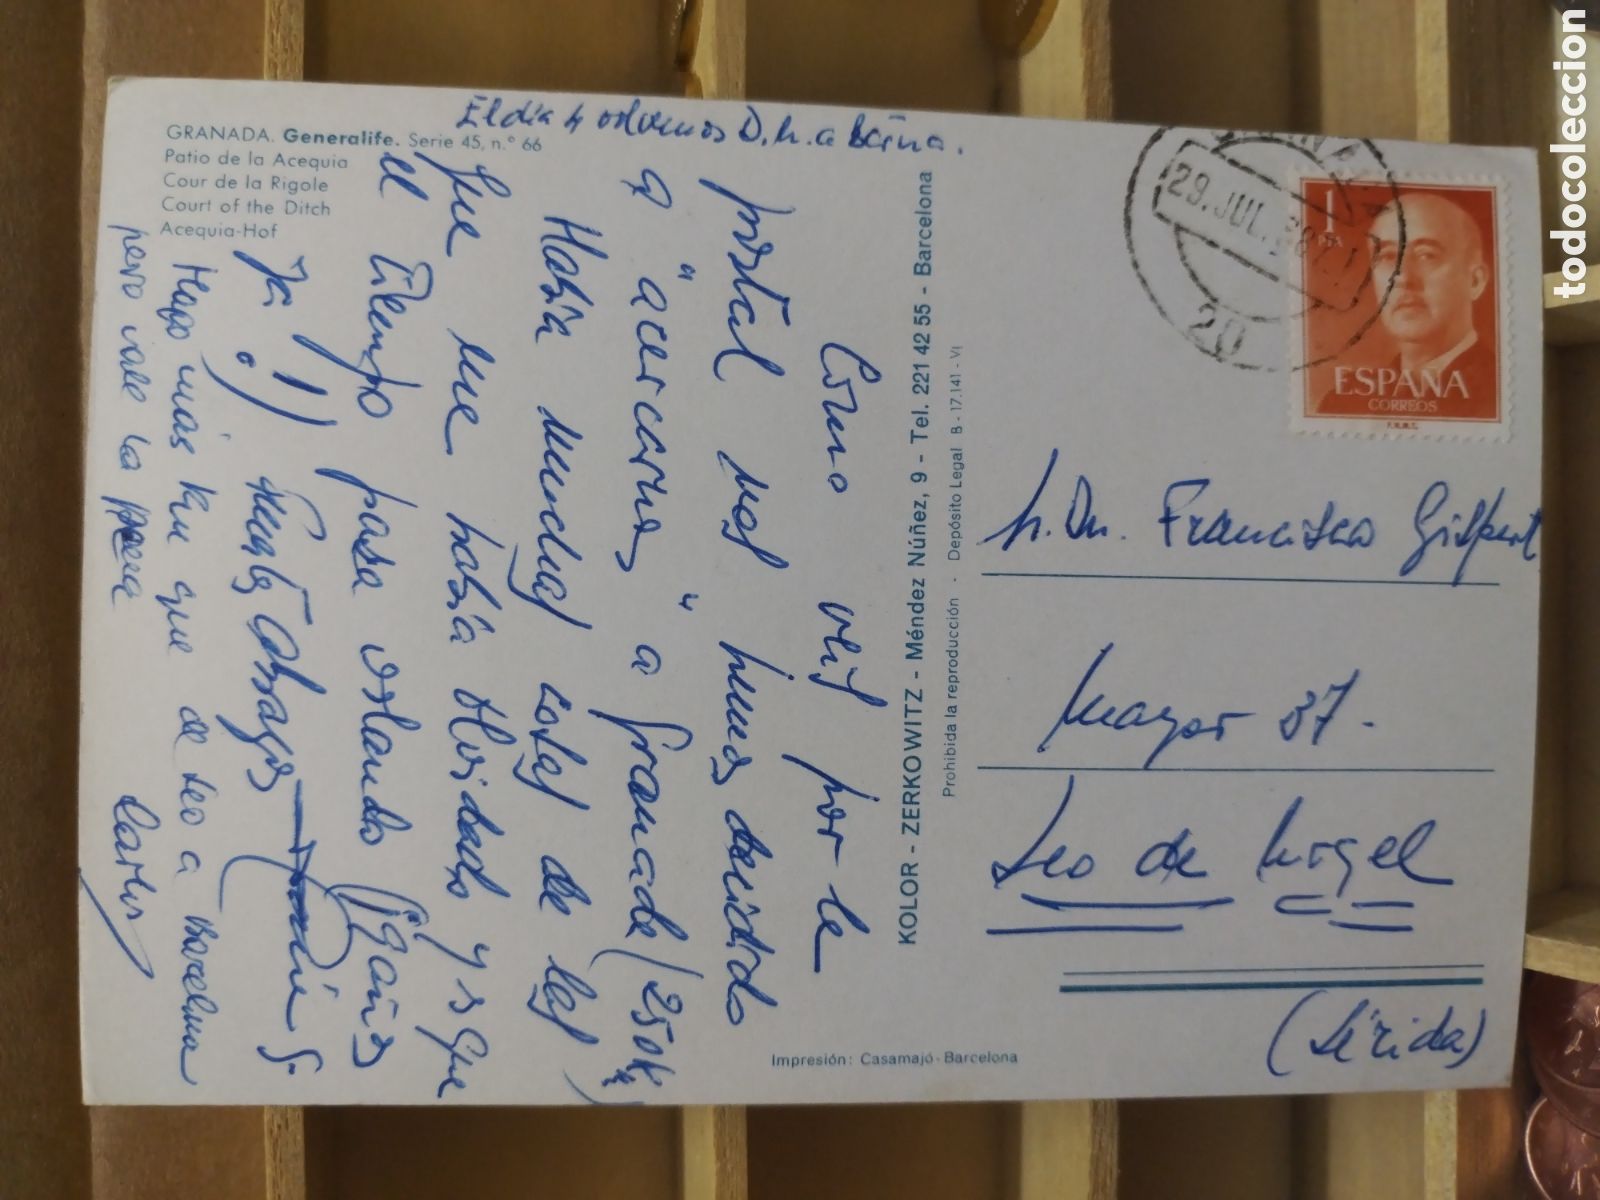 El día 4 D. m. a
GRANADA. Generalife. Serie 45, n.º 66
Patio de la Acequia
Cour de la Rigole
Court of the Ditch
Acequia-Hof
Como veis por la
postal nos hemos decidido
a "acercarnos" a Granada (250k)
Había muchas cosas de las
que me había olvidado y es que
el tiempo pasa volando (9 años
ya!!) Fuertes abrazos
Hago más km que de Seo a Barcelona
pero vale la pena
Carlos
KOLOR - ZERKOWITZ - Méndez Núñez, 9 - Tel. 221 42 55 - Barcelona
Prohibida la reproducción - Depósito Legal B - 17.141 - VI
Impresión: Casamajó - Barcelona
29. JUL.
20
1
PTA
ESPAÑA
CORREOS
F.N.M.T.
Sr. Dn. Francisco Gispert
Mayor 37.
Seo de Urgel
(Lérida)
todocoleccion